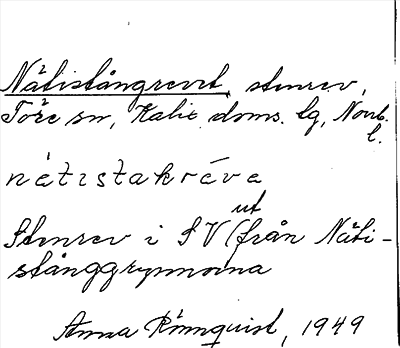 Nätistångrevet, stenrev,
Töre sn, Kalix doms. lg, Norrb.
l.
nẹ́tistakrẹ́va
Stenrev i SV ut från Näti-
stånggrynnorna
Anna Rönnquist, 1949